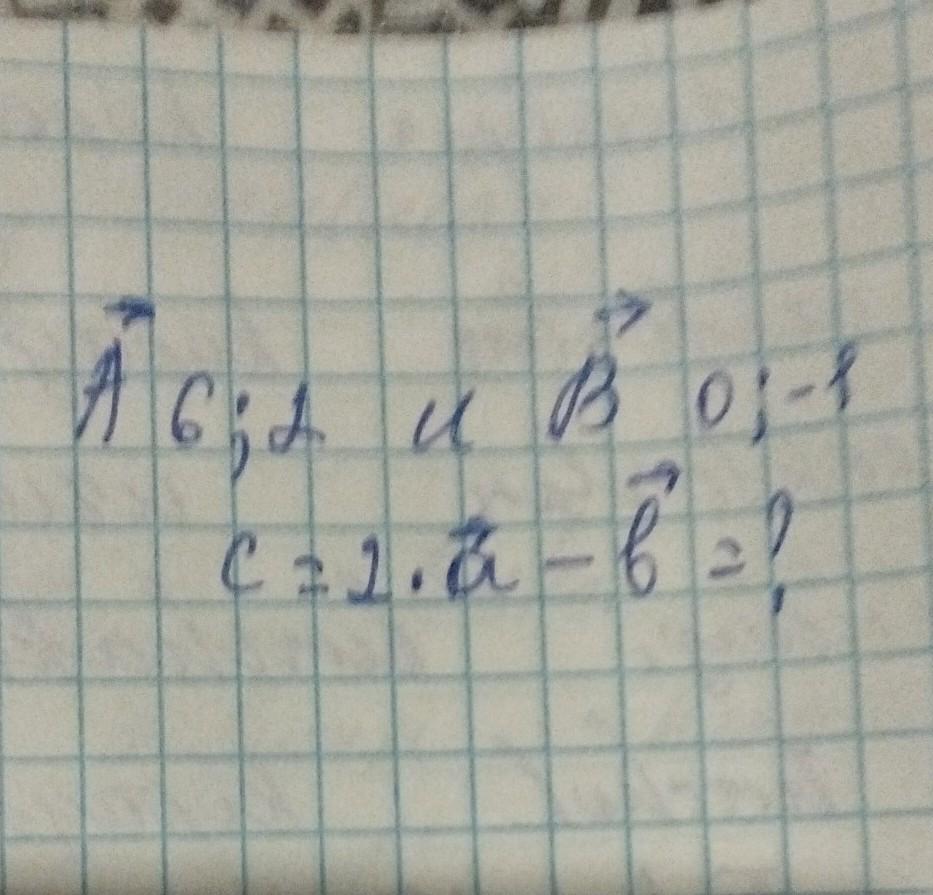 A⃗ 6;2 и B⃗ 0;-1
c = 2 · a⃗ - b⃗ = ?